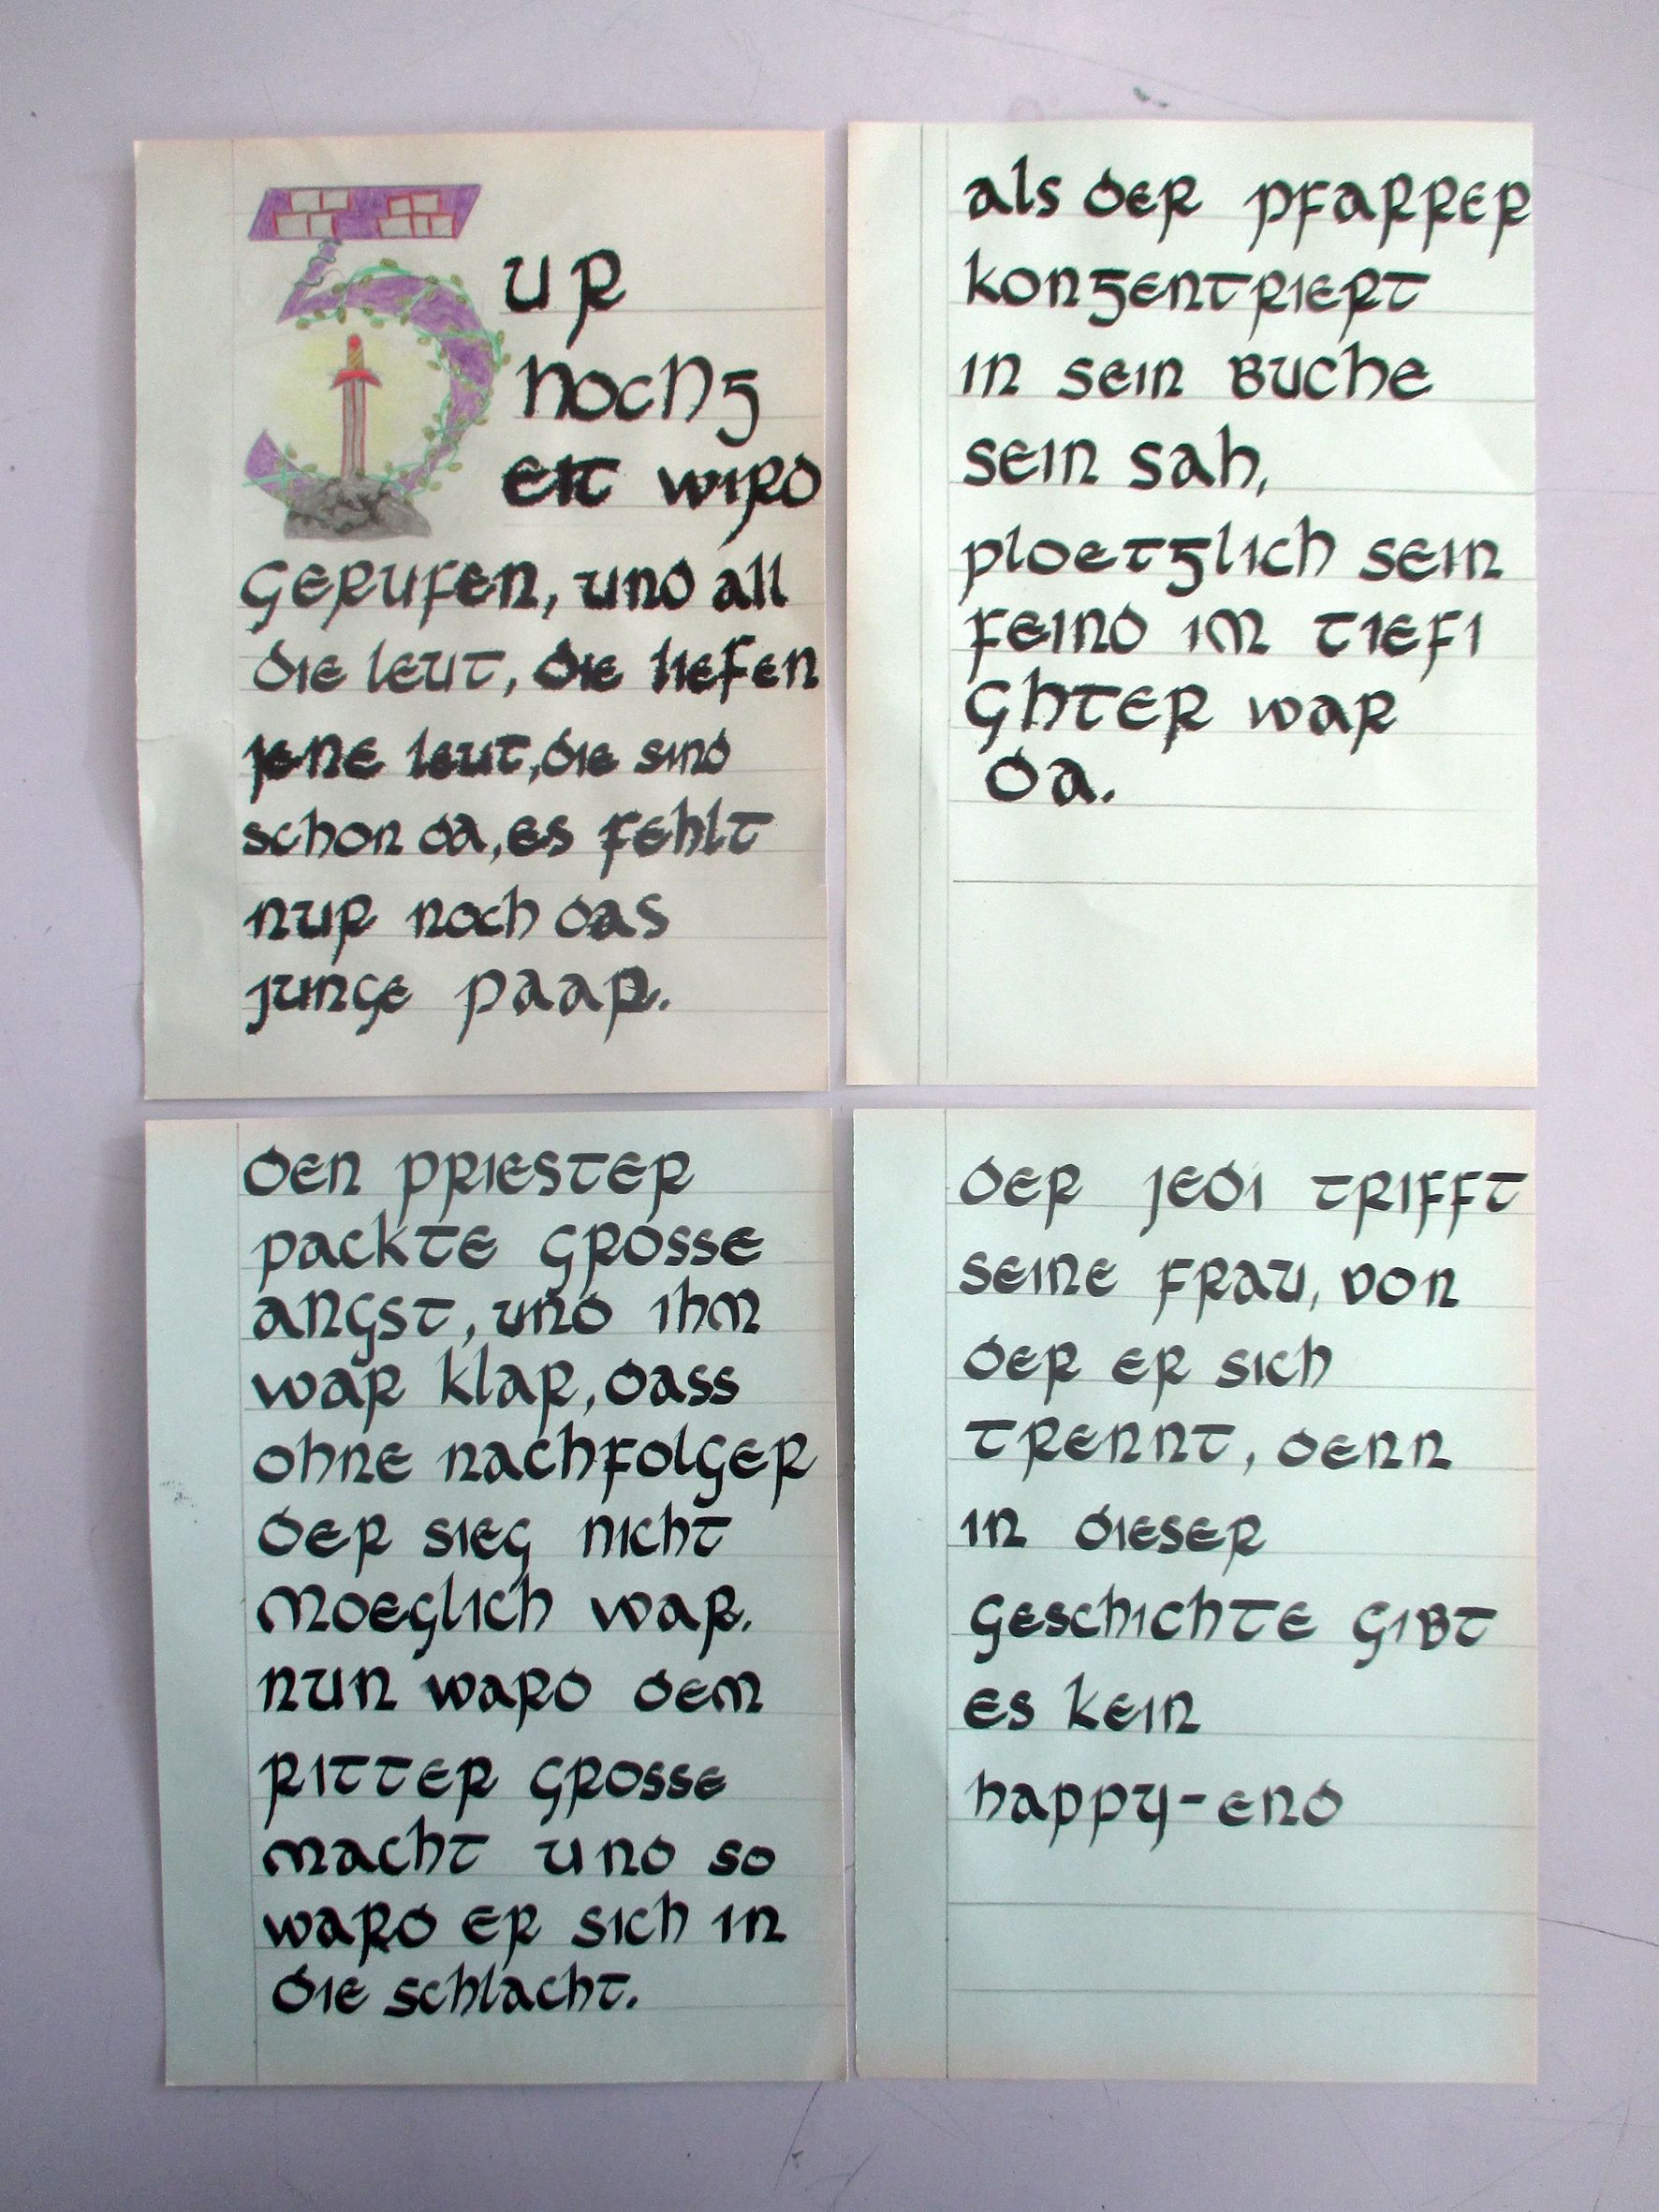 Zur
hochz
eit wird
gerufen, und all
die leut, die liefen
jene leut, die sind
schon da, es fehlt
nur noch das
junge paar.
als der pfarrer
konzentriert
in sein buche
sein sah,
ploetzlich sein
feind im tiefi
ghter war
da.
den priester
packte grosse
angst, und ihm
war klar, dass
ohne nachfolger
der sieg nicht
moeglich war.
nun ward dem
ritter grosse
macht und so
ward er sich in
die schlacht.
der jedi trifft
seine frau, von
der er sich
trennt, denn
in dieser
geschichte gibt
es kein
happy-end